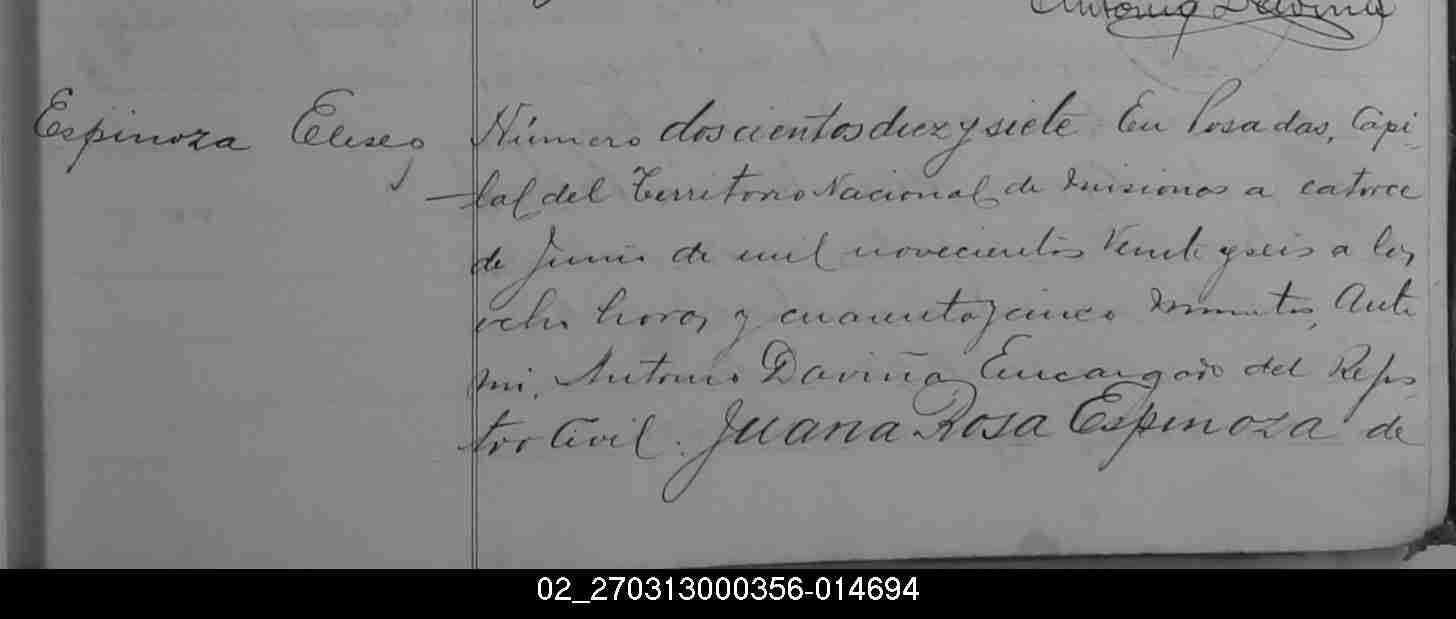 Antonio Daviña
Espinoza Eliseo
Número doscientos diez y siete En Posadas, Capi-
tal del Territorio Nacional de Misiones a catorce
de Junio de mil novecientos Veinte y seis a las
ocho horas y cuarenta y cinco minutos, Ante
mi, Antonio Daviña, Encargado del Regis-
tro Civil. Juana Rosa Espinoza de
02_270313000356-014694